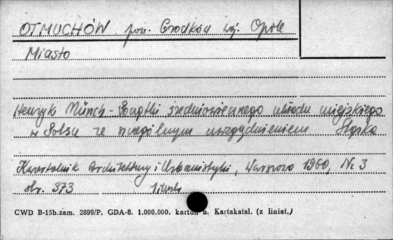 OTMUCHÓW pow. Grodków woj. Opole
Miasto
Henryk Münch - Początki średniowiecznego układu miejskiego
w Polsce ze szczególnym uwzględnieniem Śląska
Kwartalnik Architektury i Urbanistyki, Warszawa 1960, Nr 3
str. 373
CWD B-15b.zam. 2899/P. GDA-8. 1.000.000. karton b. Kartakatal. (z liniat.)